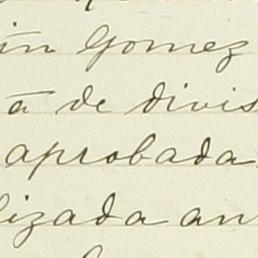 ín Gomez
a de divis
aprobada
lizada an